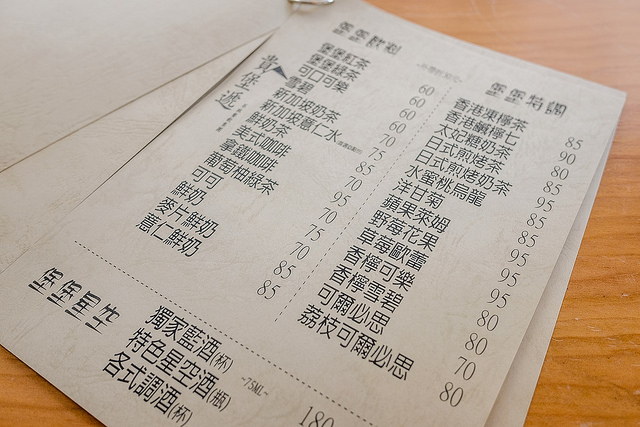 堡堡飲料
堡堡紅茶 60
堡堡綠茶 60
可口可樂 60
雪碧 60
新加坡奶茶 70
新加坡薏仁水 75
鮮奶茶 85
美式咖啡 70
拿鐵咖啡 95
葡萄柚綠茶 70
可可 75
鮮奶 70
麥片鮮奶 85
薏仁鮮奶 85
貴堡遞
堡堡特調
香港凍檸茶 85
香港鹹檸七 90
太妃糖奶茶 80
日式煎焙茶 85
日式煎焙奶茶 95
水蜜桃烏龍 85
洋甘菊 85
蘋果萊姆 95
野莓花果 95
草莓歐蕾 95
香檸可樂 80
香檸雪碧 80
可爾必思 70
荔枝可爾必思 80
堡堡星空
獨家藍酒(杯) 180
特色星空酒(瓶) -75ML-
各式調酒(杯)